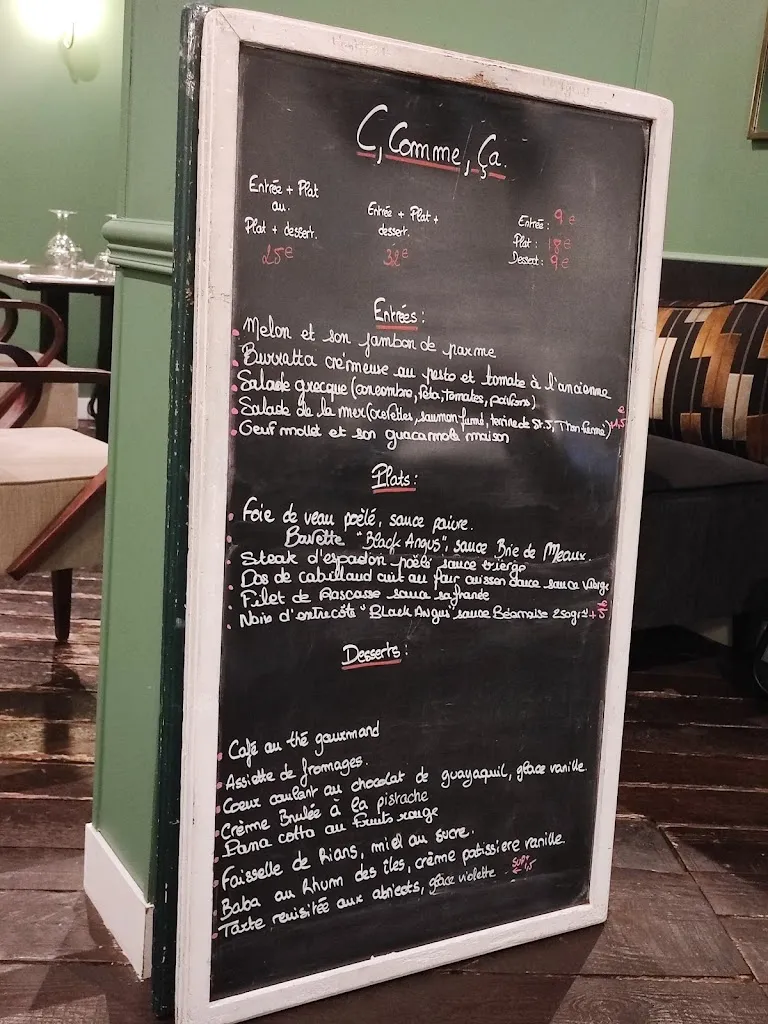 C, Comme, Ça.
Entrée + Plat
ou
Plat + dessert.
25€
Entrée + Plat +
dessert.
32€
Entrée : 9€
Plat : 18€
Dessert : 9€
Entrées :
Melon et son jambon de parme
Burratta crémeuse au pesto et tomate à l'ancienne
Salade grecque (concombre, feta, tomates, poivrons)
Salade de la mer (crevettes, saumon fumé, terrine de St. J, Thon fumé)
Oeuf mollet et son guacamole maison
Plats :
Foie de veau poêlé, sauce poivre.
Bavette "Black Angus", sauce Brie de Meaux.
Steak d'espadon poêlé sauce vierge
Dos de cabillaud cuit au four cuisson douce sauce vierge
Filet de Rascasse sauce safranée
Noix d'entrecôte "Black Angus sauce Béarnaise 250gr
Desserts :
Café ou thé gourmand
Assiette de fromages.
Coeur coulant au chocolat de guayaquil, glace vanille.
Crème Brulée à la pistache
Pana cotta au fruits rouge
Faisselle de Rians, miel ou sucre.
Baba au Rhum des îles, crème patissiere vanille
Tarte revisitée aux abricots, glace violette